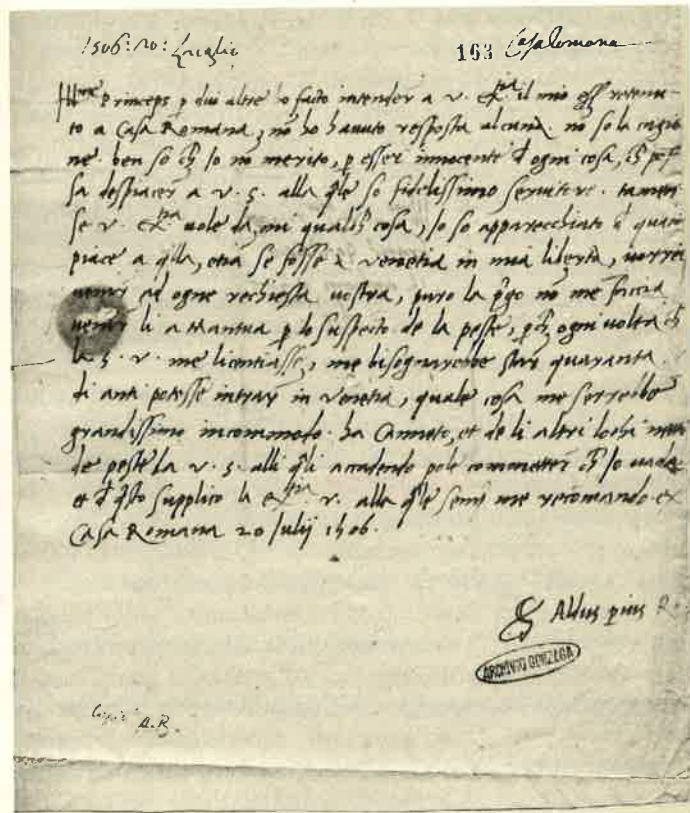 1506: 20: Luglio
163 Casalromana
Ill.me Princeps p due altre ho facto intender a v. Ex.tia il mio esser retenu-
to a Casa Romana, nō ho havuto resposta alcuna. nō so la cagio
ne. ben so ch Io nō merito, p esser innocente d ogni cosa, ch pos
sa despiacer a v. S. alla qle so fidelissimo servitore. tamen
se v. Ex.tia vole da mi qualch cosa, Io so apparecchiato a quāto
piace a qlla, etiā se fosse ī Venetia in mia libertà, vorrei
venir ad ogne rechiesta vostra, puro la pgo nō me faccia
venir li a Mantua p lo suspecto de la peste, pch ogni volta ch
la S. v. me licentiasse, me bisognarebbe star quaranta
di anti potesse intrar in Venetia, quale cosa me serrebbe
grandissimo incommodo. ha Canneto, et de li altri lochi netti
de peste la v. S. alli qli accadendo pole cometter ch Io vada
et d qsto supplico la Ex.tia v. alla qle semp me recomando. ex
Casa Romana 20 Julij 1506.
Aldus pius R
ARCHIVIO GONZAGA
A.R.